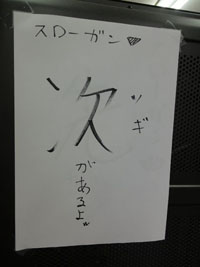 スローガン♥
次
ツギ
があるよ〃